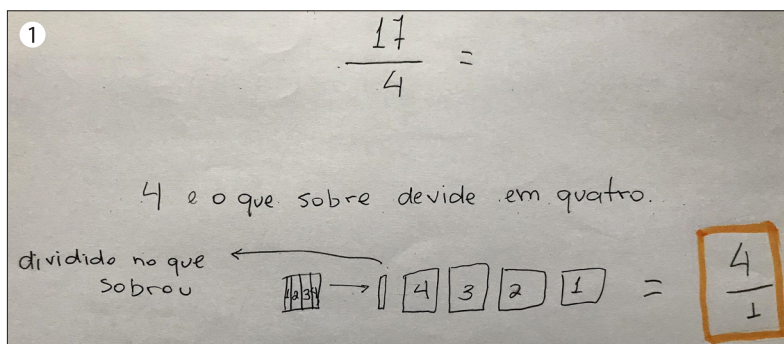 1
17
4 =
4 e o que sobre devide em quatro.
dividido no que
sobrou
1 2 3 4 → 4 3 2 1 = 4
1